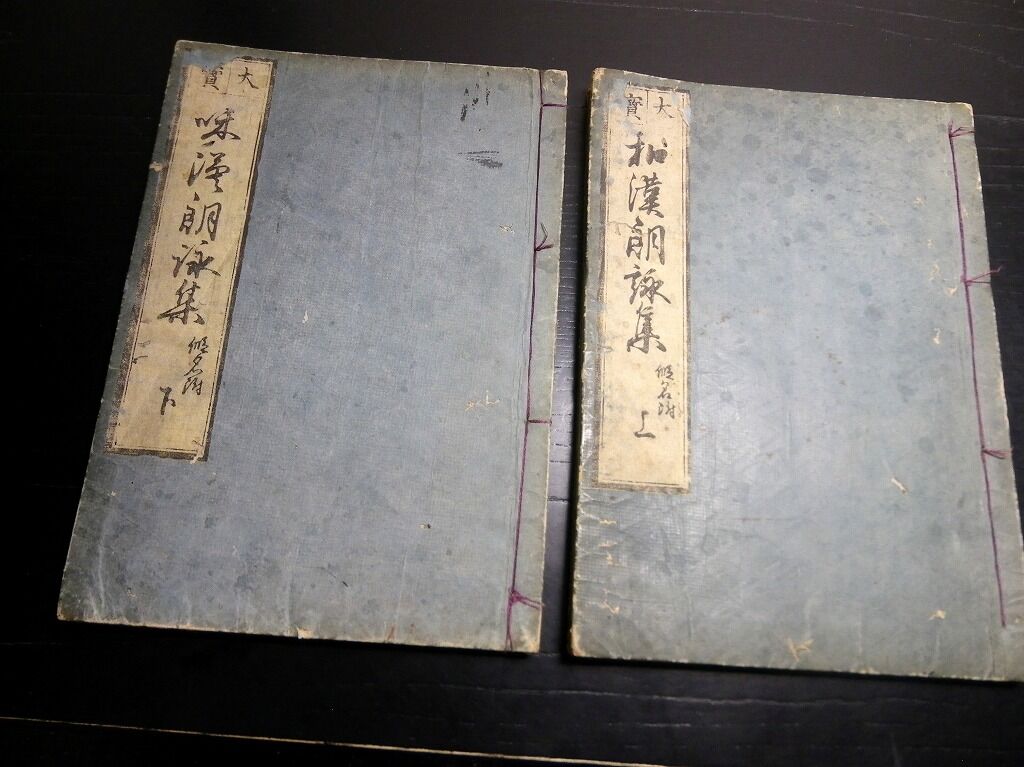 大寳
和漢朗詠集
假名附
上
大寳
和漢朗詠集
假名附
下